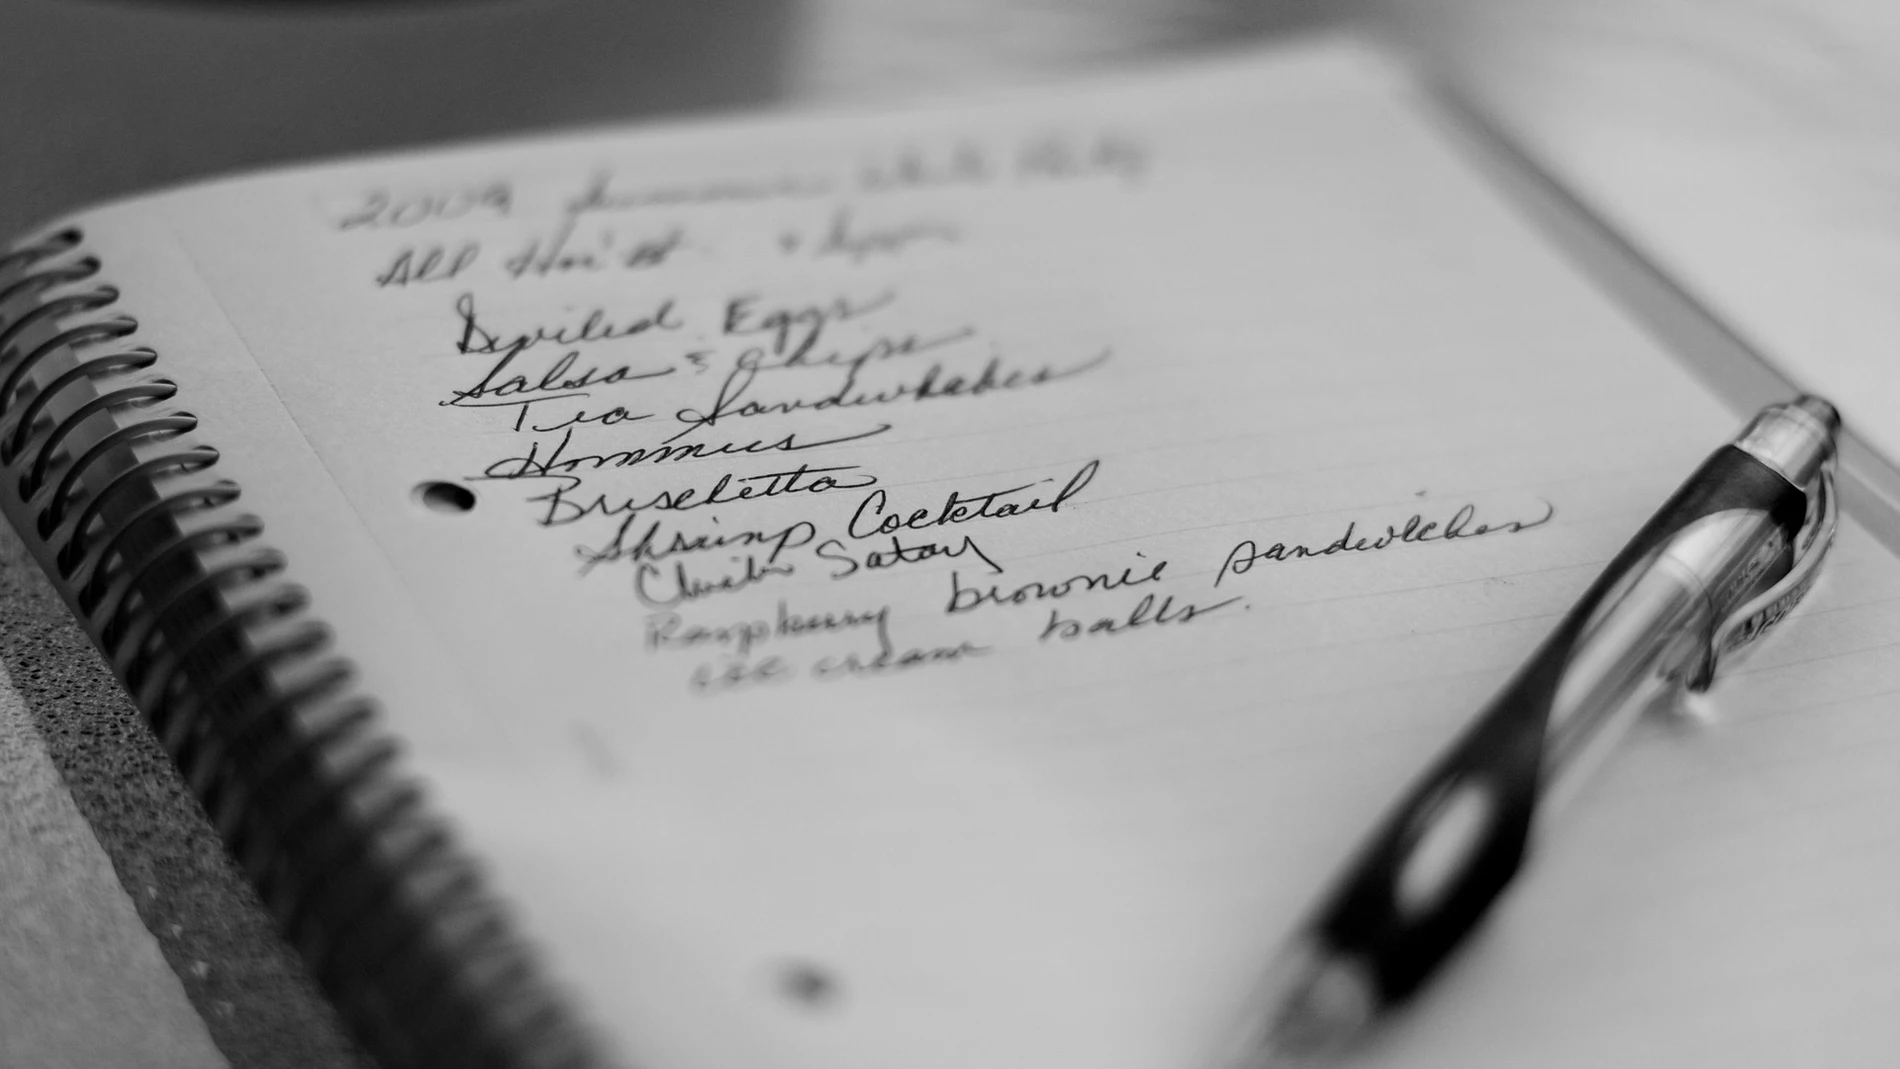 2009 Summer White Party
All Hor'd
Deviled Eggs
Salsa & Chips
Tea Sandwhiches
Hommus
Bruschetta
Shrimp Cocktail
Satay
Raspberry brownie sandwiches
ice cream balls.